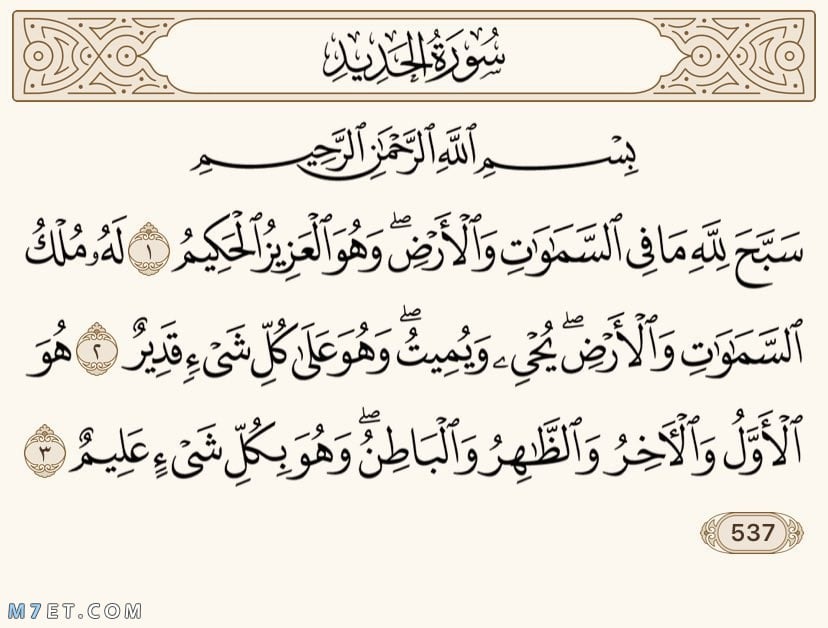 سُورَةُ الحَدِيدِ
بِسْمِ ٱللَّهِ ٱلرَّحْمَٰنِ ٱلرَّحِيمِ
سَبَّحَ لِلَّهِ مَا فِى ٱلسَّمَٰوَٰتِ وَٱلْأَرْضِۖ وَهُوَ ٱلْعَزِيزُ ٱلْحَكِيمُ ١ لَهُۥ مُلْكُ
ٱلسَّمَٰوَٰتِ وَٱلْأَرْضِۖ يُحْىِۦ وَيُمِيتُۖ وَهُوَ عَلَىٰ كُلِّ شَىْءٍ قَدِيرٌ ٢ هُوَ
ٱلْأَوَّلُ وَٱلْـَٔاخِرُ وَٱلظَّٰهِرُ وَٱلْبَاطِنُۖ وَهُوَ بِكُلِّ شَىْءٍ عَلِيمٌ ٣
537
M7ET.COM